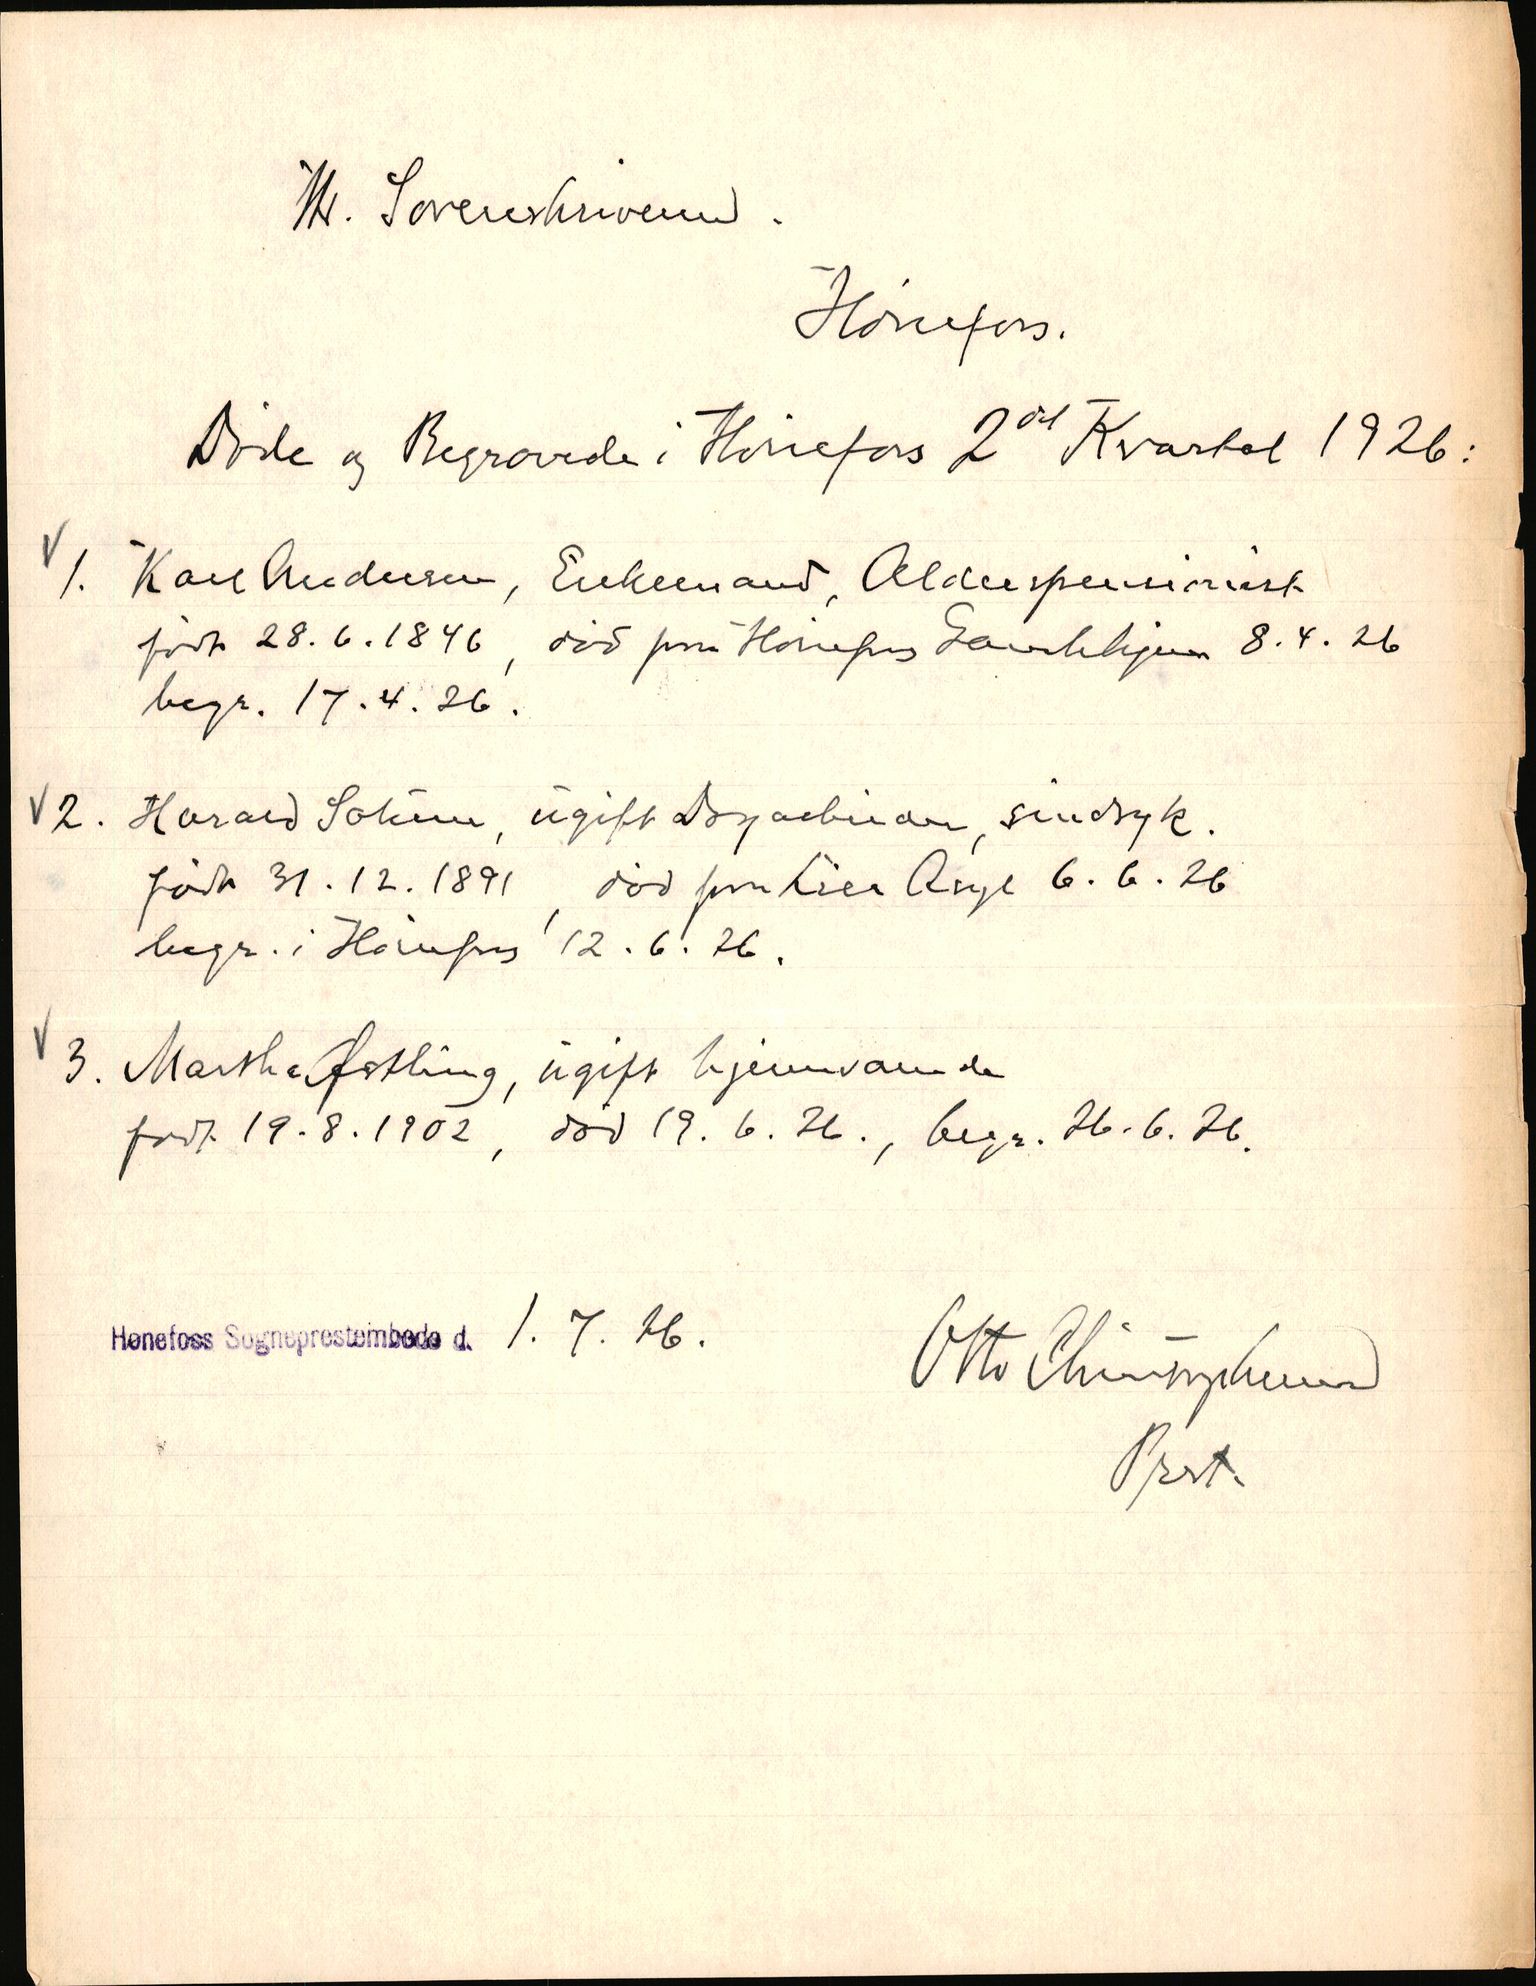 Hr. Sorenskriveren.
Hönefos.
Döde og Begravede i Hönefos 2det Kvartal 1926:
1. Karl Andersen, Enkemand, Alderspensionist
födt 28.6.1846, död paa Hönefos Gamlehjem 8.4.26
begr. 17.4.26.
2. Harald Solum, ugift Dagarbeider, sindsyk.
födt 31.12.1891, död paa Lier Asyl 6.6.26
begr. i Hönefos 12.6.26.
3. Martha Østling, ugift hjemvæ­rende
födt 19.8.1902, död 19.6.26., begr. 26.6.26.
Hønefoss Sogneprestembede d. 1.7.26.
Otto Christophersen
Prest.